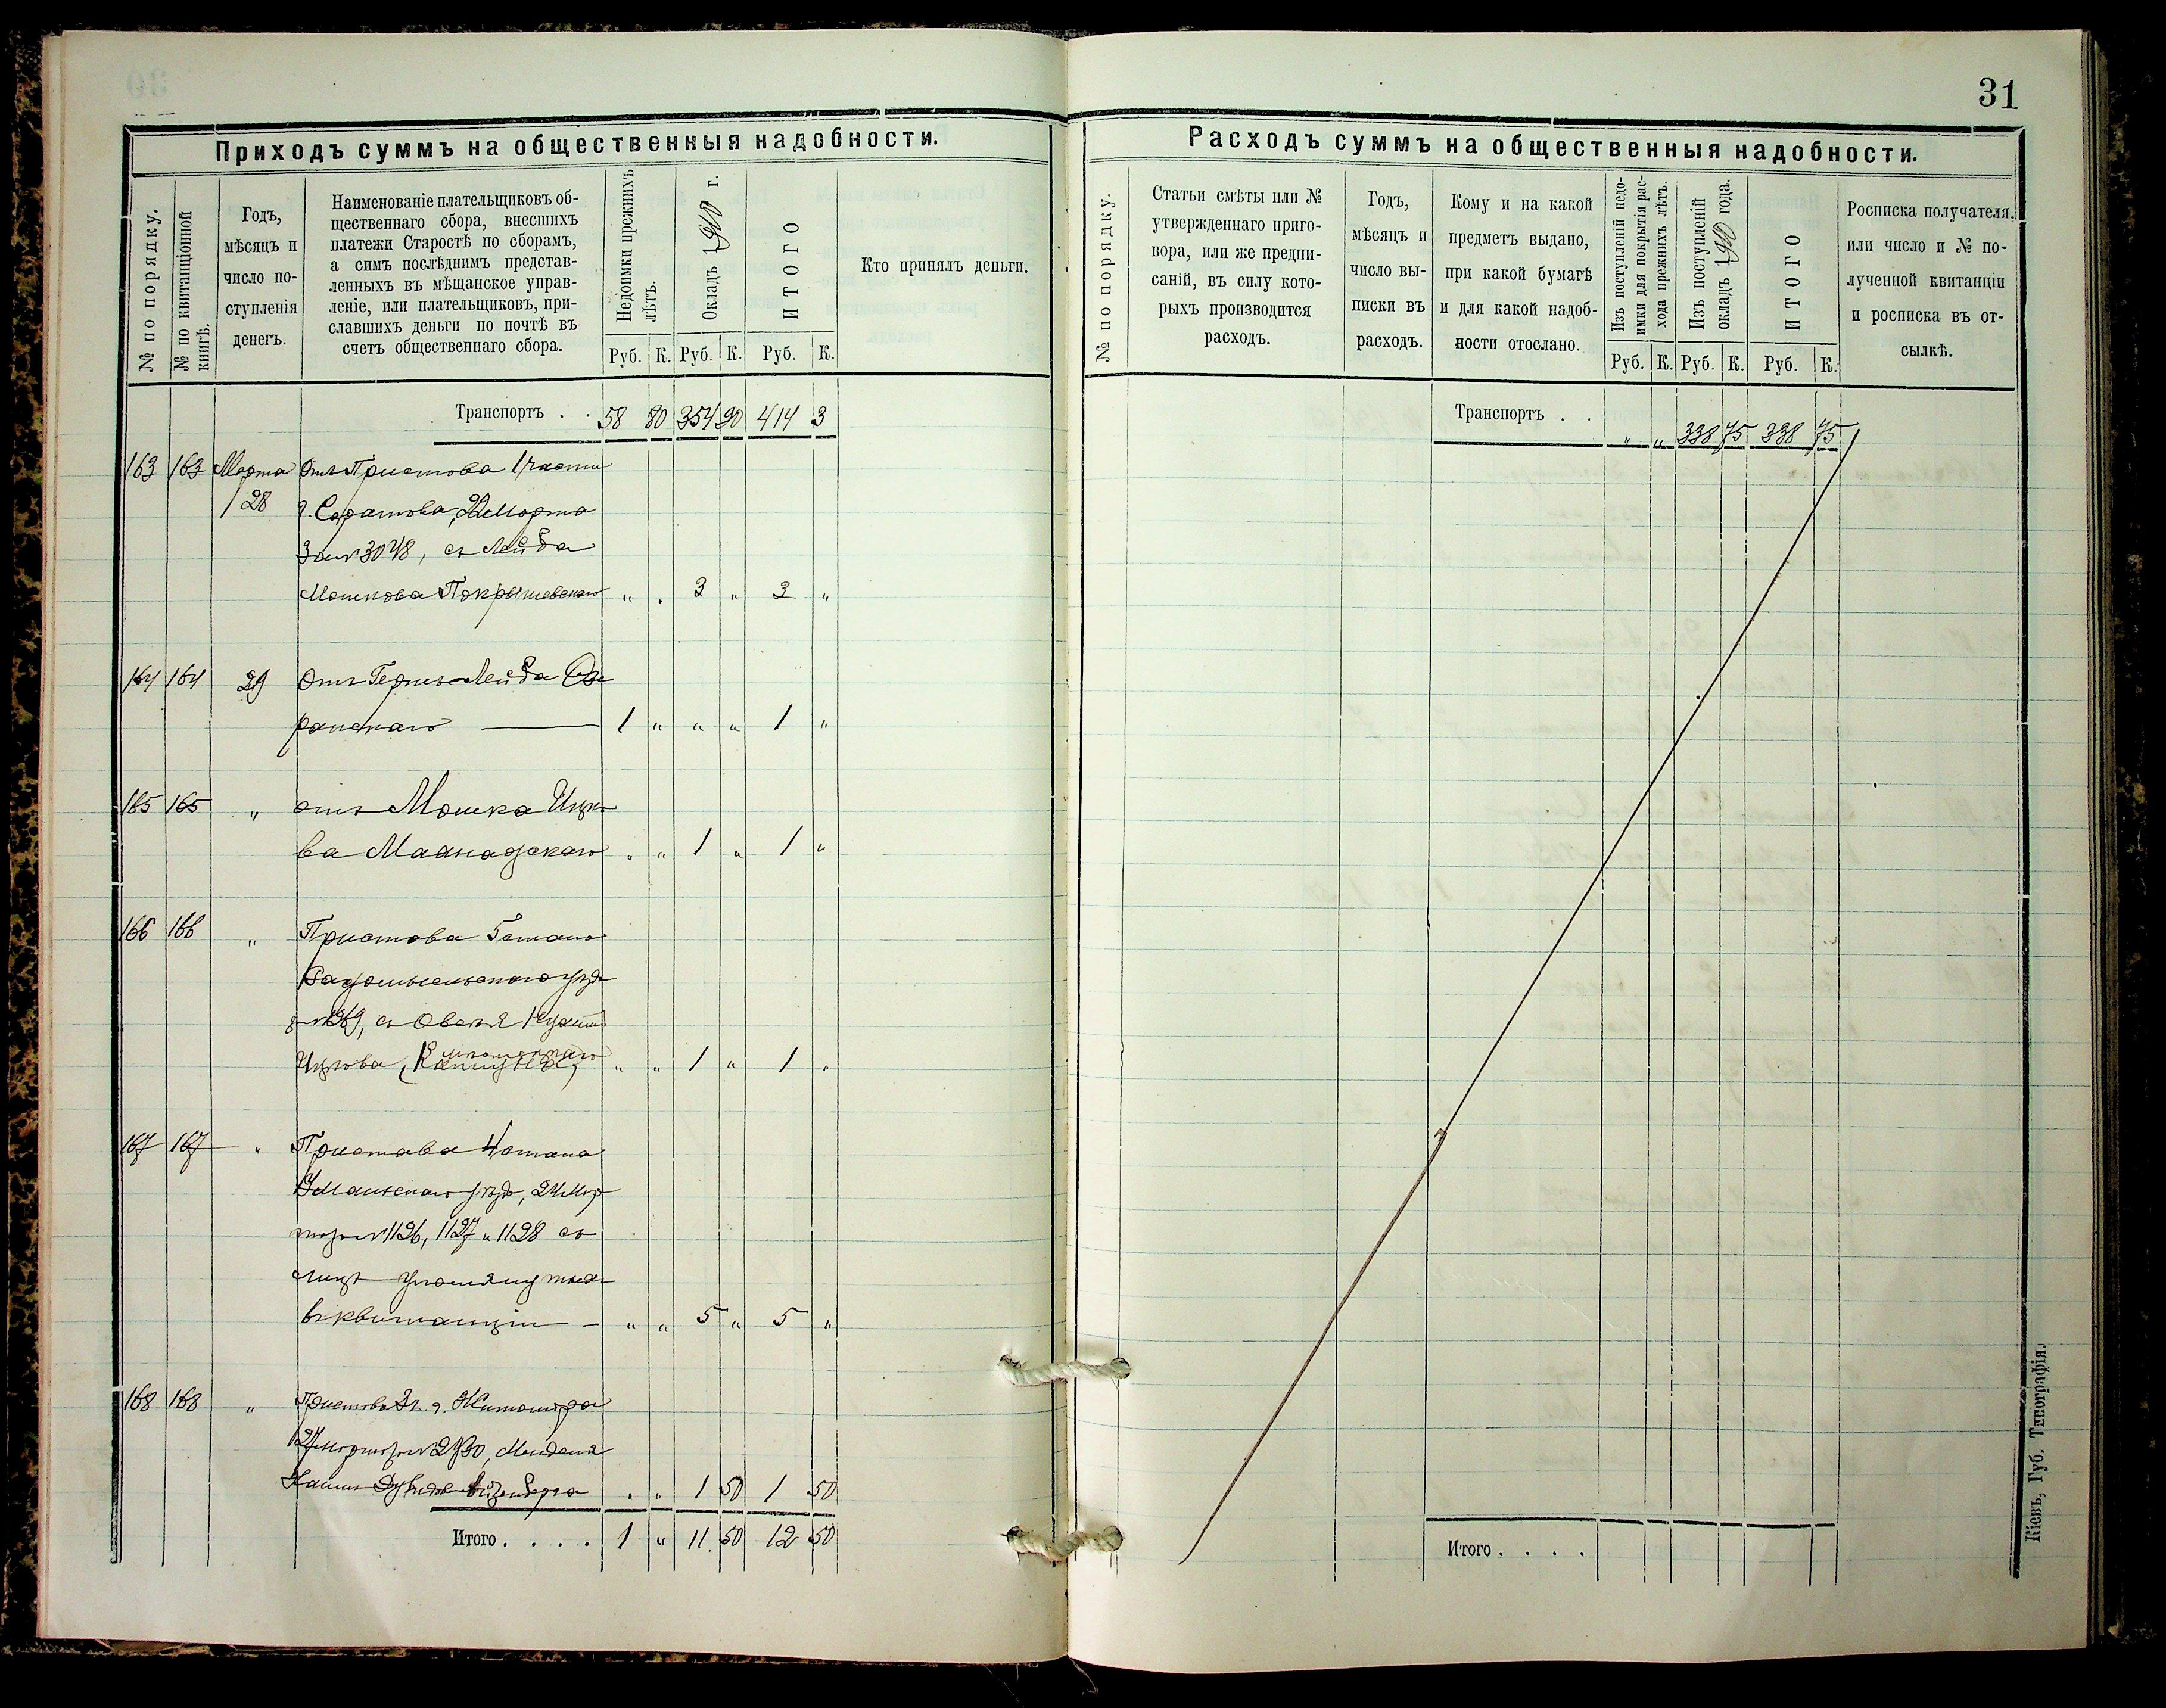 31
Приходъ суммъ на общественныя надобности.
№ по порядку.
№ по квитанціонной
книгѣ.
Годъ,
мѣсяцъ и
число по-
ступленія
денегъ.
Наименованіе плательщиковъ об-
щественнаго сбора, внесшихъ
платежи Старостѣ по сборамъ,
а симъ послѣднимъ представ-
ленныхъ въ мѣщанское управ-
леніе, или плательщиковъ, при-
славшихъ деньги по почтѣ въ
счетъ общественнаго сбора.
Недоимки прежнихъ
лѣтъ.
Окладъ 1910 г.
ИТОГО
Кто принялъ деньги.
Руб. К. Руб. К. Руб. К.
Транспортъ . . 58 80 354 90 414 3
163 163 Марта Отъ Пристава 1 части
28 г. Саратова, 22 Марта
За № 3048, съ Лейба
Мошкова " . 3 " 3 "
164 164 29 Отъ Герша-Лейба
1 " " " 1 "
165 165 " отъ Мошка Ицко
ва " " 1 " 1 "
166 166 " Пристава 5 стана
Радомысльскаго уѣзда
съ Овсея
Ицкова " " 1 " 1 "
167 167 " Пристава 4 стана
Уманскаго уѣзд, 24 Мар
та за № 1126, 1127 и 1128 съ
лицъ упомянутыхъ
въ квитанціи — " " 5 " 5 "
168 168 " Пристава 3 ч. г. Житомира
27 марта за № Менделя
. " 1 50 1 50
Итого . . . . 1 " 11 50 12 50
Расходъ суммъ на общественныя надобности.
№ по порядку.
Статьи смѣты или №
утвержденнаго приго-
вора, или же предпи-
саній, въ силу кото-
рыхъ производится
расходъ.
Годъ,
мѣсяцъ и
число вы-
писки въ
расходъ.
Кому и на какой
предметъ выдано,
при какой бумагѣ
и для какой надоб-
ности отослано.
Изъ поступленій недо-
имки для покрытія рас-
хода прежнихъ лѣтъ.
Изъ поступленій
окладъ 1910 года.
ИТОГО
Росписка получателя,
или число и № по-
лученной квитанціи
и росписка въ от-
сылкѣ.
Руб. К. Руб. К. Руб. К.
Транспортъ . . " " 338 75 338 75
Итого . . . .
Кіевъ, Губ. Типографія.